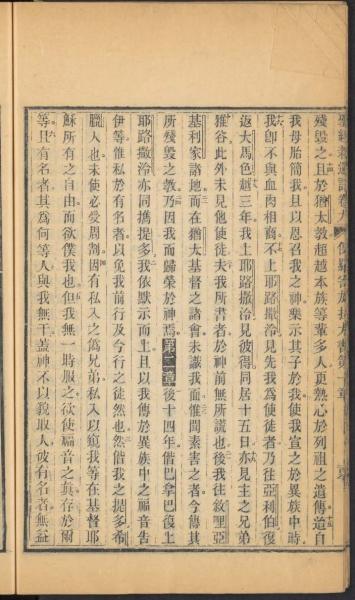 殘毀之且於猶太教超越本族等輩多人更熱心於列祖之遺傳道自
我母胎簡我且以恩召我之神樂示其子於我使我宣之於異族中時
我卽不與血肉相商不上耶路撒冷見先我爲使徒者乃往亞利伯復
返大馬色越三年我上耶路撒冷見彼得同居十五日亦見主之兄弟
雅各此外未見他使徒夫我所書者於神前無所謊也後我往敘里亞
基利家諸地而在猶太基督之諸會未識我面惟聞素害之者今傳其
所殘毀之教乃因我而歸榮於神焉第二章後十四年偕巴拿巴復上
耶路撒冷亦同攜提多我依默示而上且以我傳於異族中之福音告
伊等惟私於有名者以免我前行及今行之徒然也然偕我之提多希
臘人也未使必受周割因有私入之僞兄弟私入以窺我等在基督耶
穌所有之自由而欲僕我也但我無一時服之欲使福音之眞存於爾
等且有名者其爲何等人與我無干蓋神不以貌取人彼有名者無益